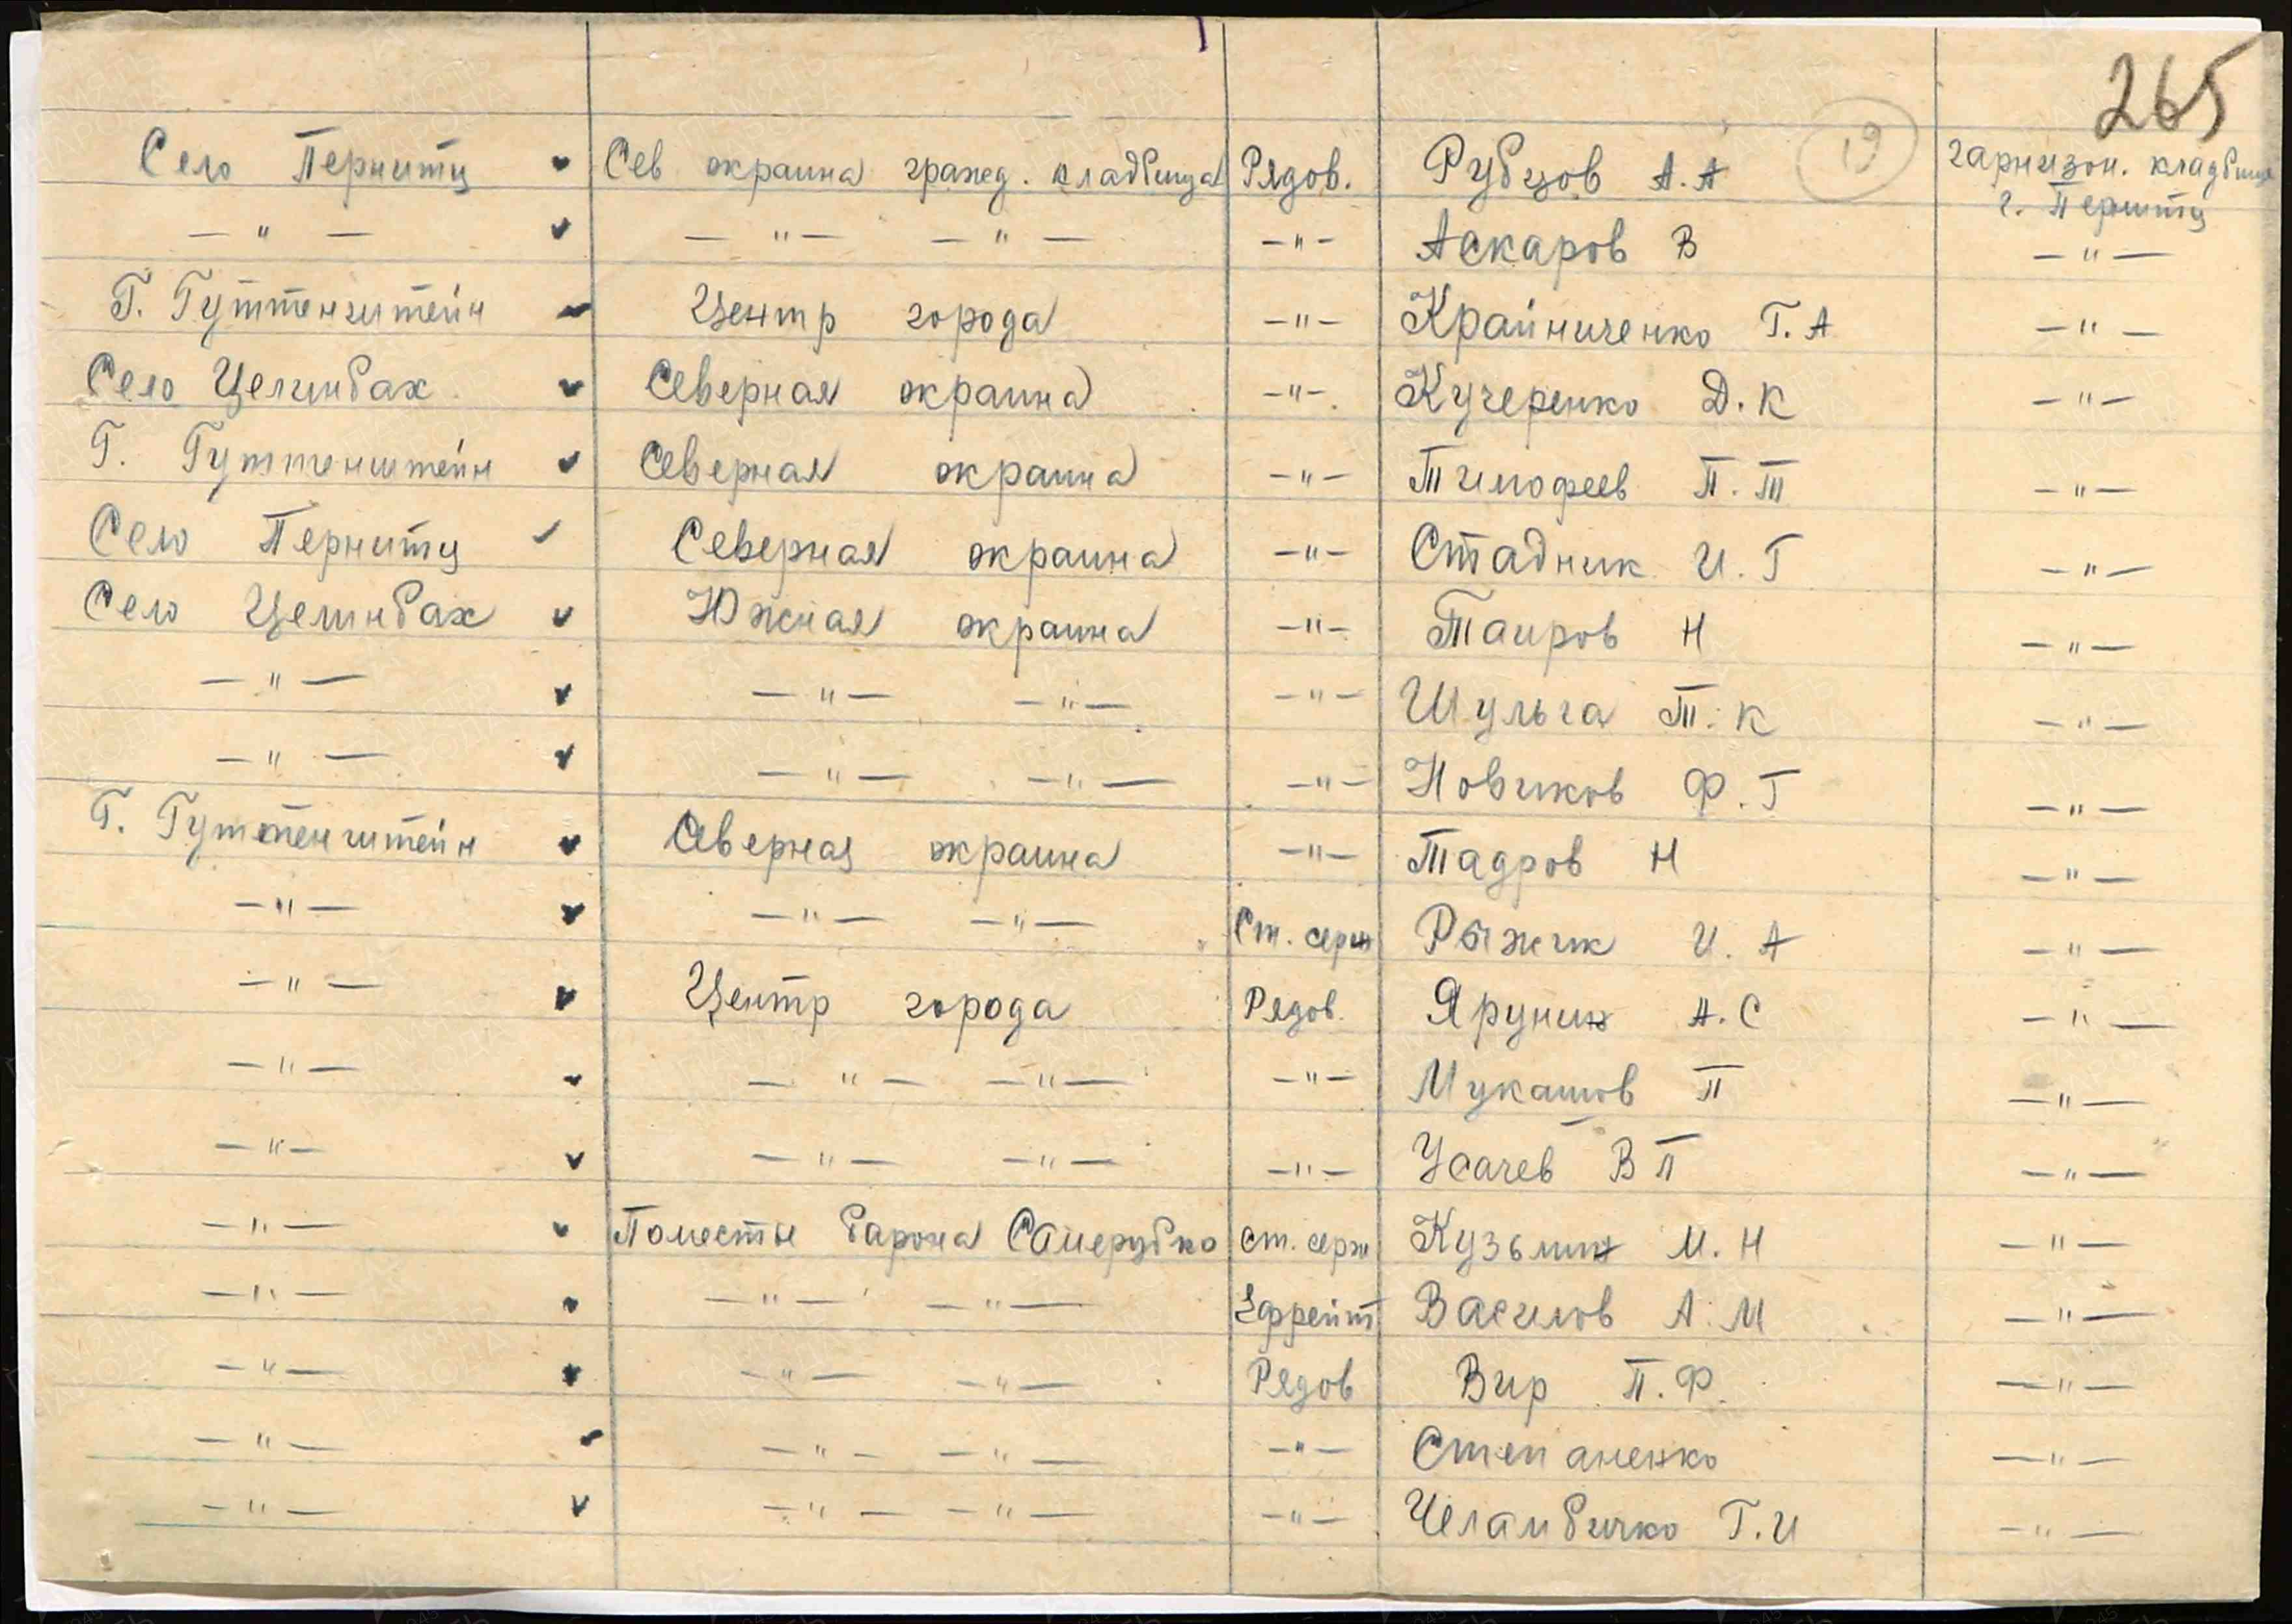 265
19
Село Пернитц Сев окраина гражд. кладбища Рядов. Рубцов А.А гарнизон. кладбище
г. Пернитц
— " — — " — — " — — " — Аскаров В — " —
Г. Гуттенштейн Центр города — " — Крайниченко Г.А — " —
Село Целинбах Северная окраина — " — Кучеренко Д.К — " —
Г. Гуттенштейн Северная окраина — " — Тимофеев П.Т — " —
Село Пернитц Северная окраина — " — Стадник И.Г — " —
Село Целинбах Южная окраина — " — Таиров Н — " —
— " — — " — — " — — " — Шульга Т.К — " —
— " — — " — — " — — " — Новиков Ф.Г — " —
Г. Гуттенштейн Северная окраина — " — Тадров Н — " —
— " — — " — — " — Ст. серж Рыжик И.А — " —
— " — Центр города Рядов. Ярунин А.С — " —
— " — — " — — " — — " — Мукашов П — " —
— " — — " — — " — — " — Усачев В П — " —
— " — Поместье барона Самерубко ст. серж Кузьмин М.Н — " —
— " — — " — — " — Ефрейт Василов А.М — " —
— " — — " — — " — Рядов Вир П.Ф. — " —
— " — — " — — " — — " — Степаненко — " —
— " — — " — — " — — " — Челамбичко Г.И — " —